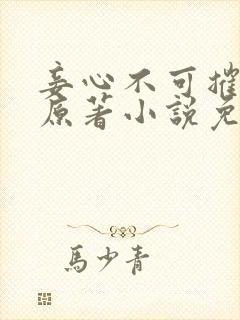 妾心不可摧
原著小説免
馬少青